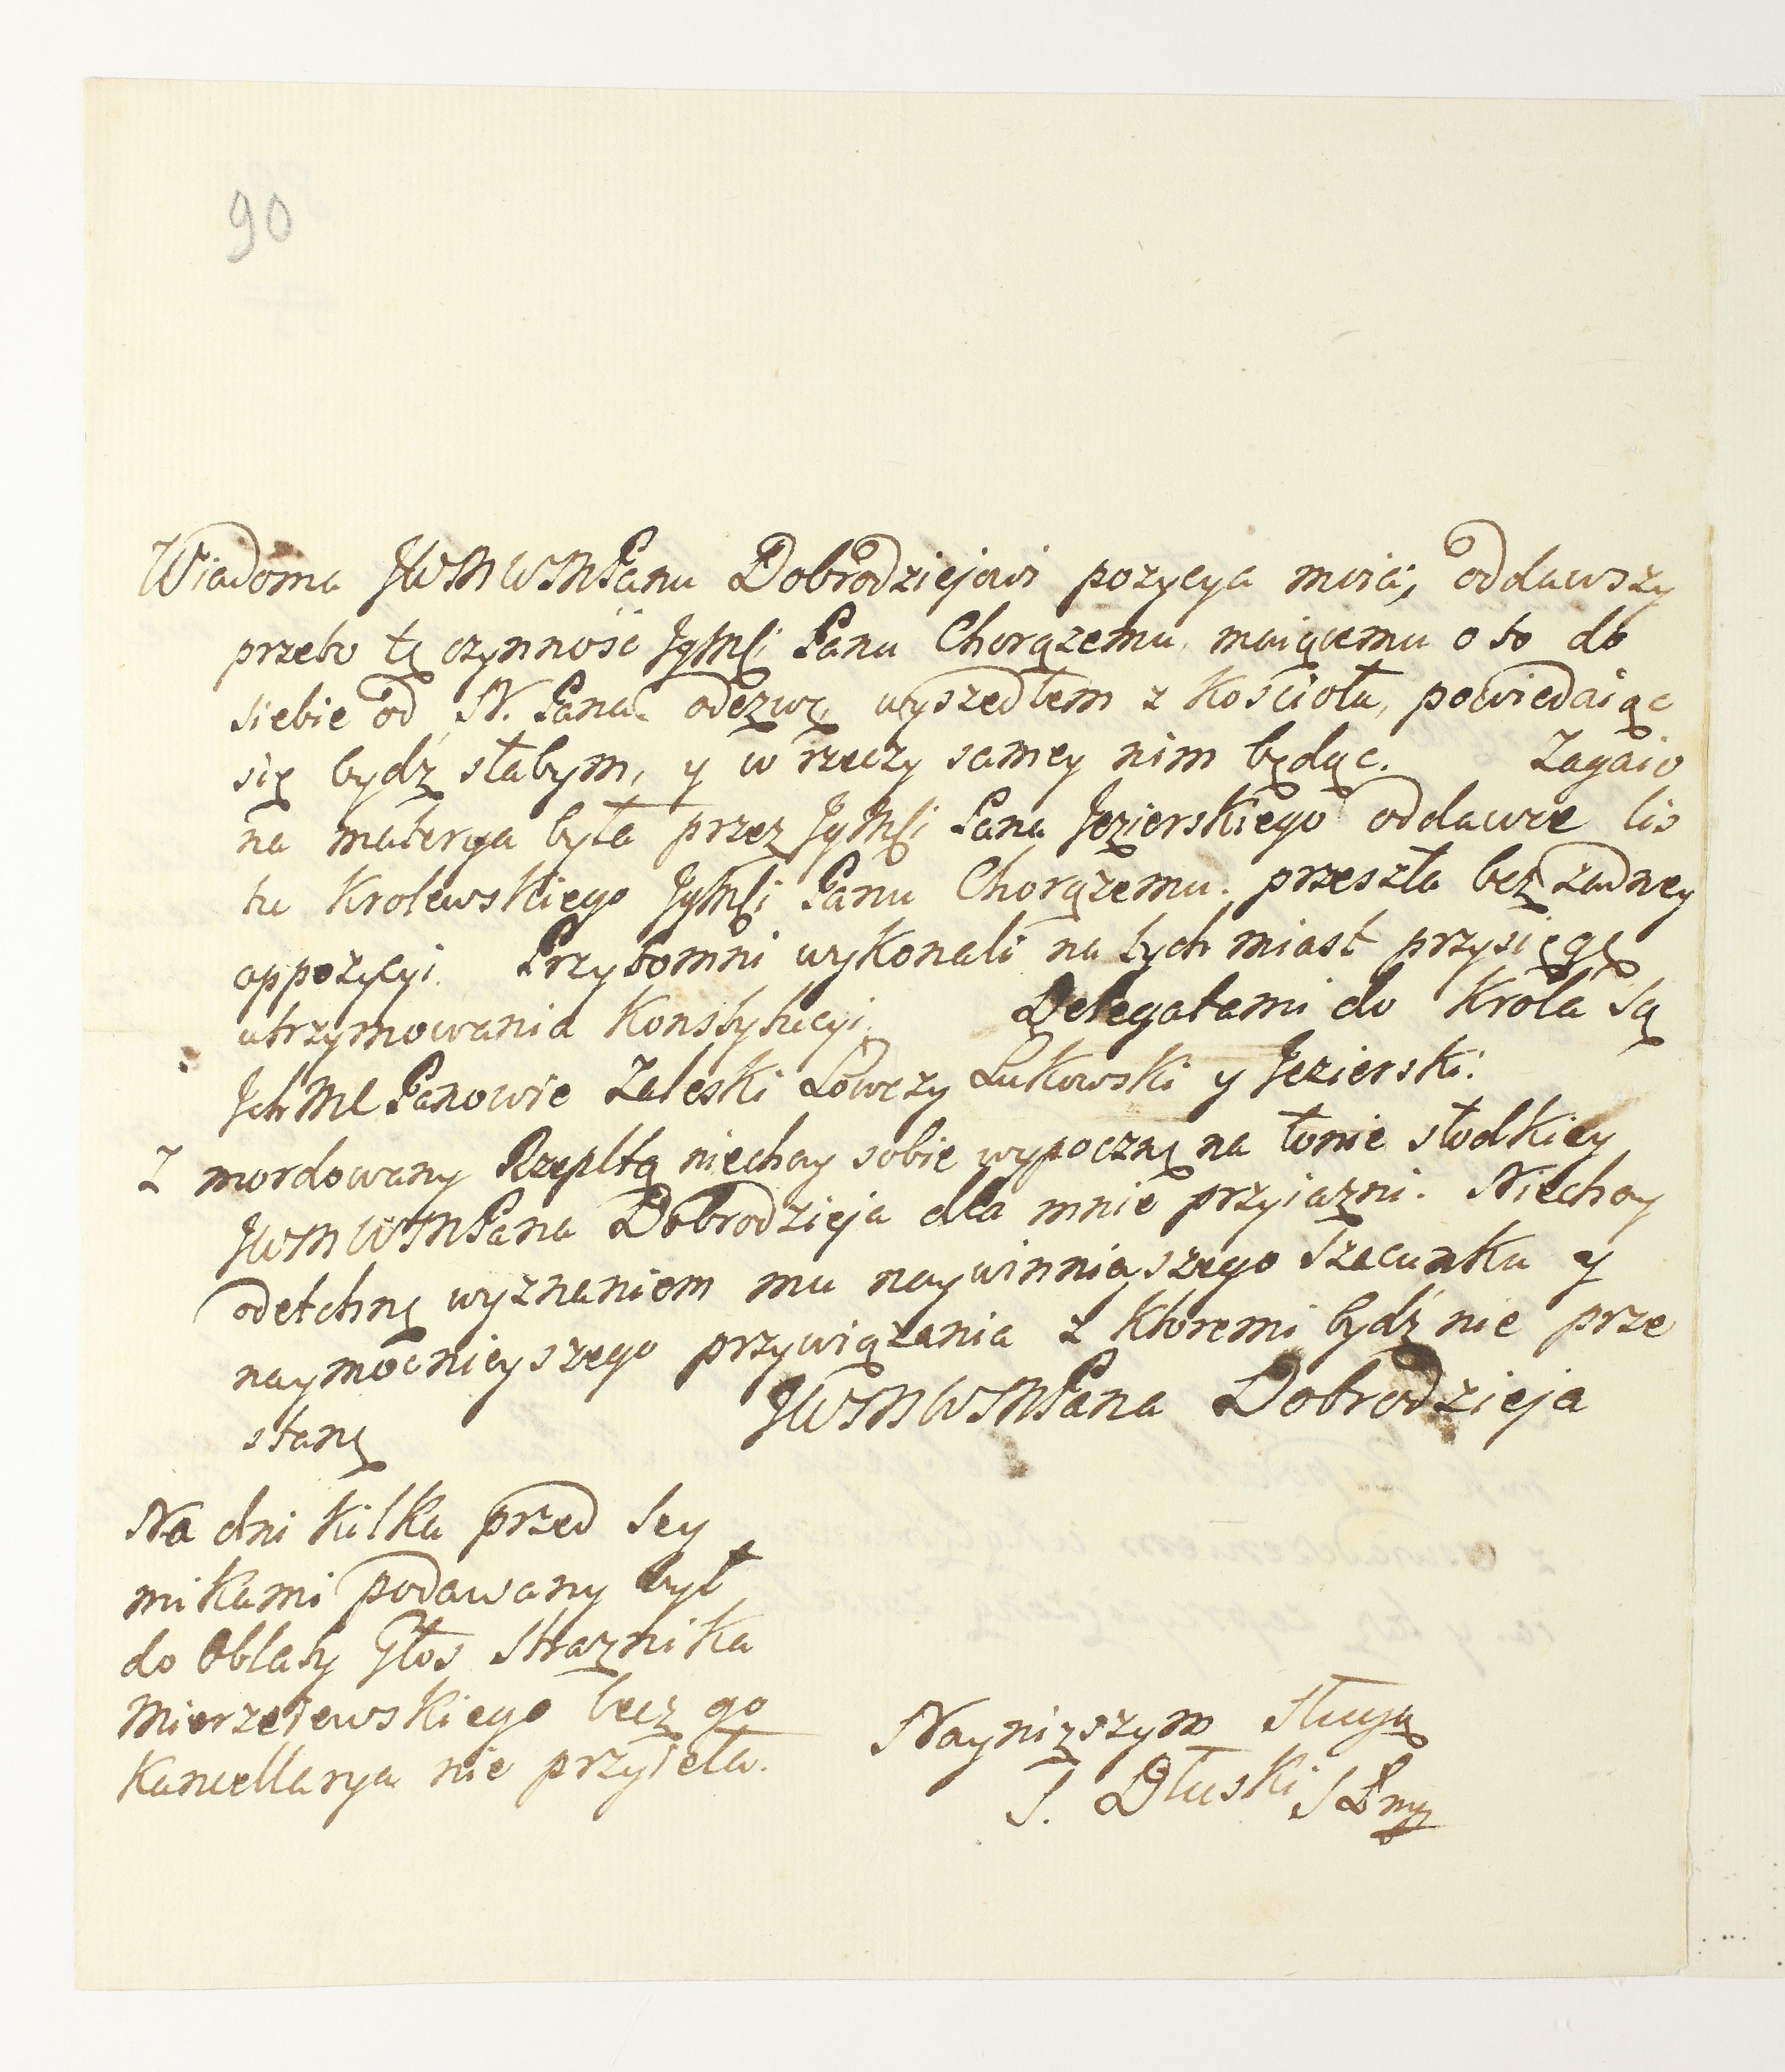 90
Wiadoma JWMWMPanu Dobrodziejowi pozycya moia, oddawszy
przeto tę czynność JgMsi Panu Chorążemu, maiącemu o to do
siebie od N. Pana odezwę, wyszedłem z Kościoła, powiedaiąc
się bydź słabym, y w rzeczy samey nim będąc. Zagaio
na materya była przez JgMsi Pana Jezierskiego oddawcę lis
tu Krolewskiego JgMsi Panu Chorążemu. przeszła bez żadney
appozycyi. Przytomni wykonali na tych miast przysięgę
utrzymowania Konstytucyi. Delegatami do Krola są
Ich MC Panowie Zaleski Łowczy Łukowski y Jezierski.
Z mordowany Rzepltą niechay sobie wypocznę na łonie słodkiey
JWMWMPana Dobrodzieja dla mnie przyiazni. Niechay
odetchnę wyznaniem mu naywinnieyszego szacunku y
naymocnieyszego przywiązania z ktoremi bydź nie prze
stanę JWMWMPana Dobrodzieja
Na dni kilka przed Sey
mikami podawany był
do Oblaty Głos Strażnika
Mierzeiewskiego lecz go
Kancellarya nie przyieła.
Nayniższym sługą
T. Dłuski